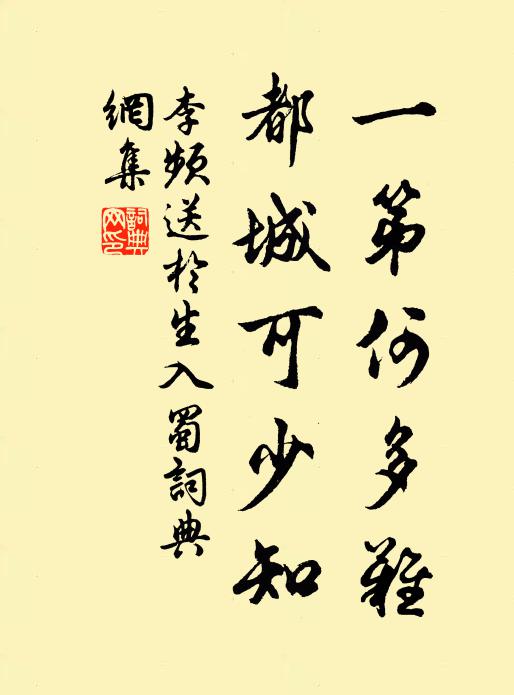 一第何多難
都城可少知
李頻送於生入蜀詞典
網集
詞典網印